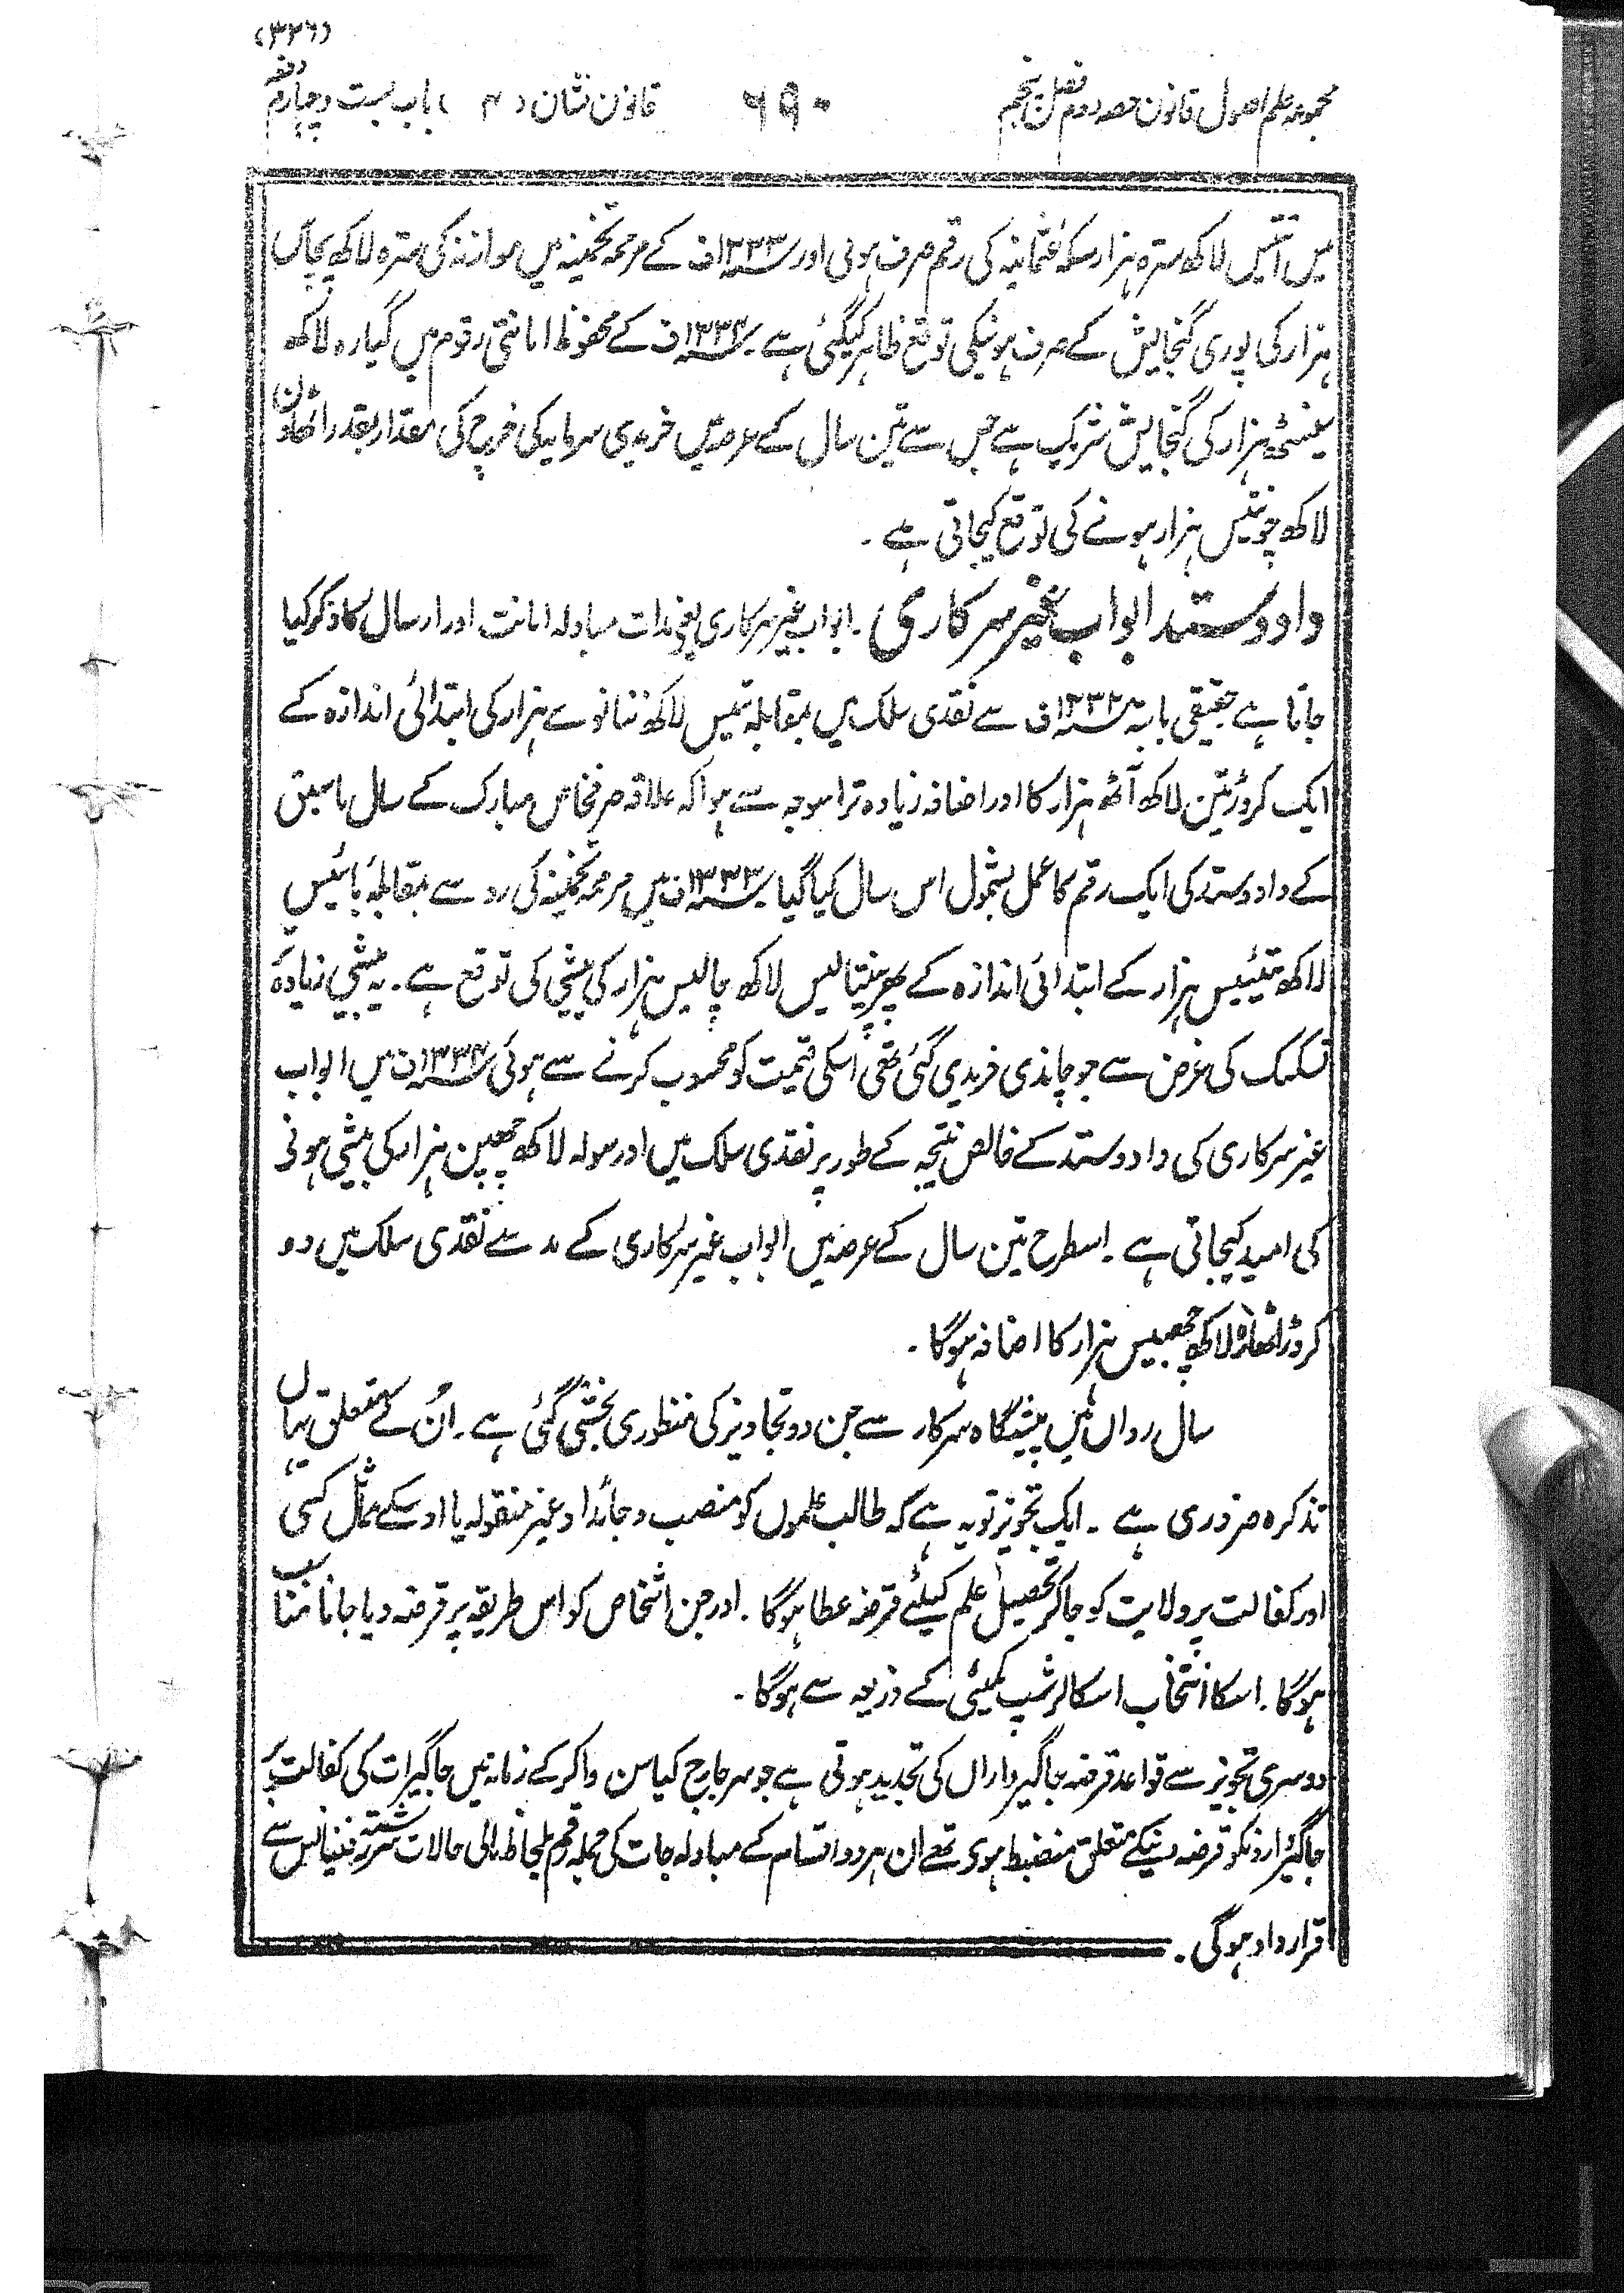 (۳۲۶)
مجموعہ علم اصول قانون حصہ دوم فصل پنجم ۶۹۰ قانون نشان (۴) باب بست و چہارم دفعہ
میں انتیس لاکھ سترہ ہزار سکہ عثمانیہ کی رقم صرف ہوئی اور ۱۳۳۳ف کے مرممہ تخمینہ میں موازنہ کی سترہ لاکھ پچاس
ہزار کی پوری گنجایش کے صرف ہونیکی توقع ظاہر کیگئی ہے ۔ ۱۳۳۴ف کے محفوظ امانتی رقوم میں گیارہ لاکھ
سینسٹھ ہزار کی گنجایش شریک ہے جس سے تین سال کے عرصہ میں خریدی سرمایہ کی خرچ کی مقدار بقدر اٹھاون
لاکھ چونتیس ہزار ہونے کی توقع کیجاتی ہے ۔
داد و ستد ابواب غیر سرکاری ۔ ابواب غیر سرکاری یعنی مدات مبادلہ امانت اور ارسال کا ذکر کیا
جاتا ہے حقیقی بابتہ ۱۳۳۲ف سے نقدی سلک میں بمقابلہ تیس لاکھ ننانوے ہزار کی ابتدائی اندازہ کے
ایک کروڑ تین لاکھ آٹھ ہزار کا اور اضافہ زیادہ تر اسوجہ سے ہوا کہ علاقہ صرفخاص مبارک کے سال ماسبق
کے داد و ستد کی ایک رقم کا عمل بشمول اس سال کیا گیا ۔ ۱۳۳۳ف میں مرممہ تخمینہ کی رو سے بمقابلہ بائیس
لاکھ تیئیس ہزار کے ابتدائی اندازہ کے پھر پنتیالیس لاکھ چالیس ہزار کی بیشی کی توقع ہے ۔ یہ بیشی زیادہ تر
تسکیک کی غرض سے جو چاندی خریدی گئی تھی اسکی قیمت کو محسوب کرنے سے ہوئی ۱۳۳۴ف میں ابواب
غیر سرکاری کی داد و ستد کے خالص نتیجہ کے طور پر نقدی سلک میں اور سولہ لاکھ چھپن ہزار کی بیشی ہونی
کی امید کیجاتی ہے ۔ اسطرح تین سال کے عرصہ میں ابواب غیر سرکاری کے مد سے نقدی سلک میں دو
کروڑ اٹھارہ لاکھ چھبیس ہزار کا اضافہ ہوگا ۔
سال رواں میں پیشگاہ سرکار سے جن دو تجاویز کی منظوری بخشی گئی ہے ۔ اُن کے متعلق یہاں
تذکرہ ضروری ہے ۔ ایک تجویز تو یہ ہے کہ طالب علموں کو منصب و جائداد غیر منقولہ یا اوسکے مماثل کسی
اور کفالت پر ولایت کو جاکر تحصیل علم کیلئے قرضہ عطا ہوگا ۔ اور جن اشخاص کو اس طریقہ پر قرضہ دیا جانا مناسب
ہوگا ۔ اسکا انتخاب اسکالرشپ کمیٹی کے ذریعہ سے ہوگا ۔
دوسری تجویز سے قواعد قرضہ جاگیرداراں کی تجدید ہوتی ہے جو سر جارج کیاسن واکر کے زمانہ میں جاگیرات کی کفالت پر
جاگیرداروں کو قرضہ دینیکے متعلق منضبط ہوی تھے ان ہر دو اقسام کے مبادلہ جات کی جملہ رقم بلحاظ مالی حالات سررشتہ فینانس سے
قرارداد ہوگی ۔